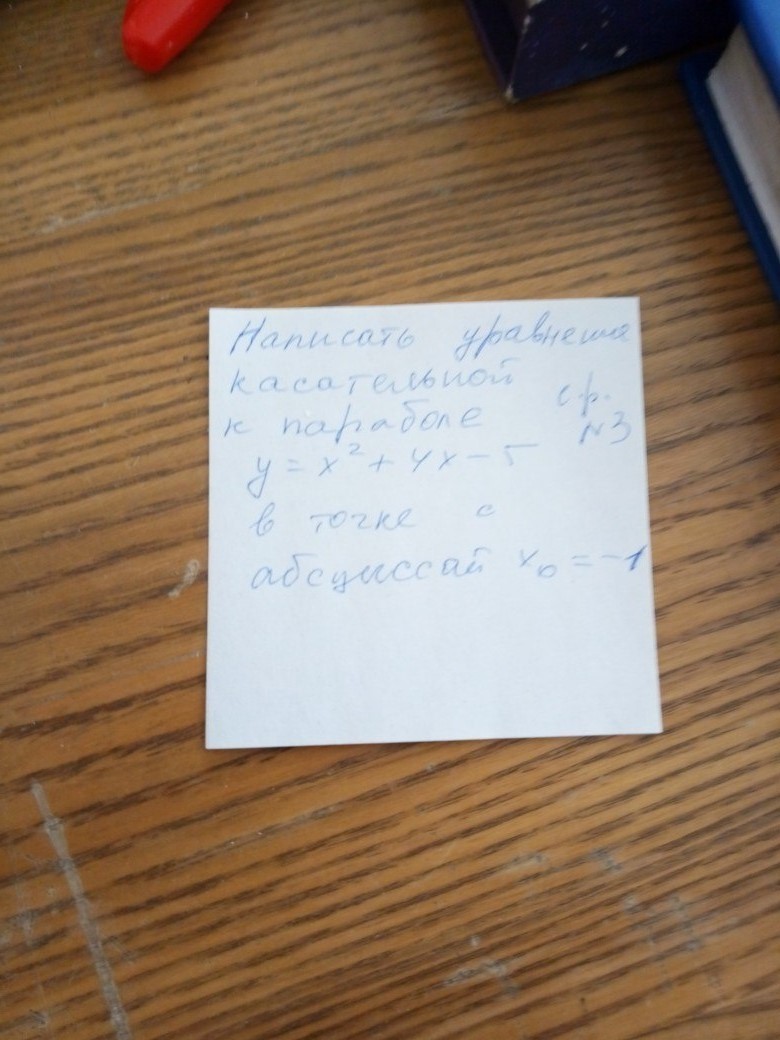 Написать уравнение
касательной
к параболе
ср. N3
y = x² + 4x - 5
в точке с
абсциссой x₀ = -1